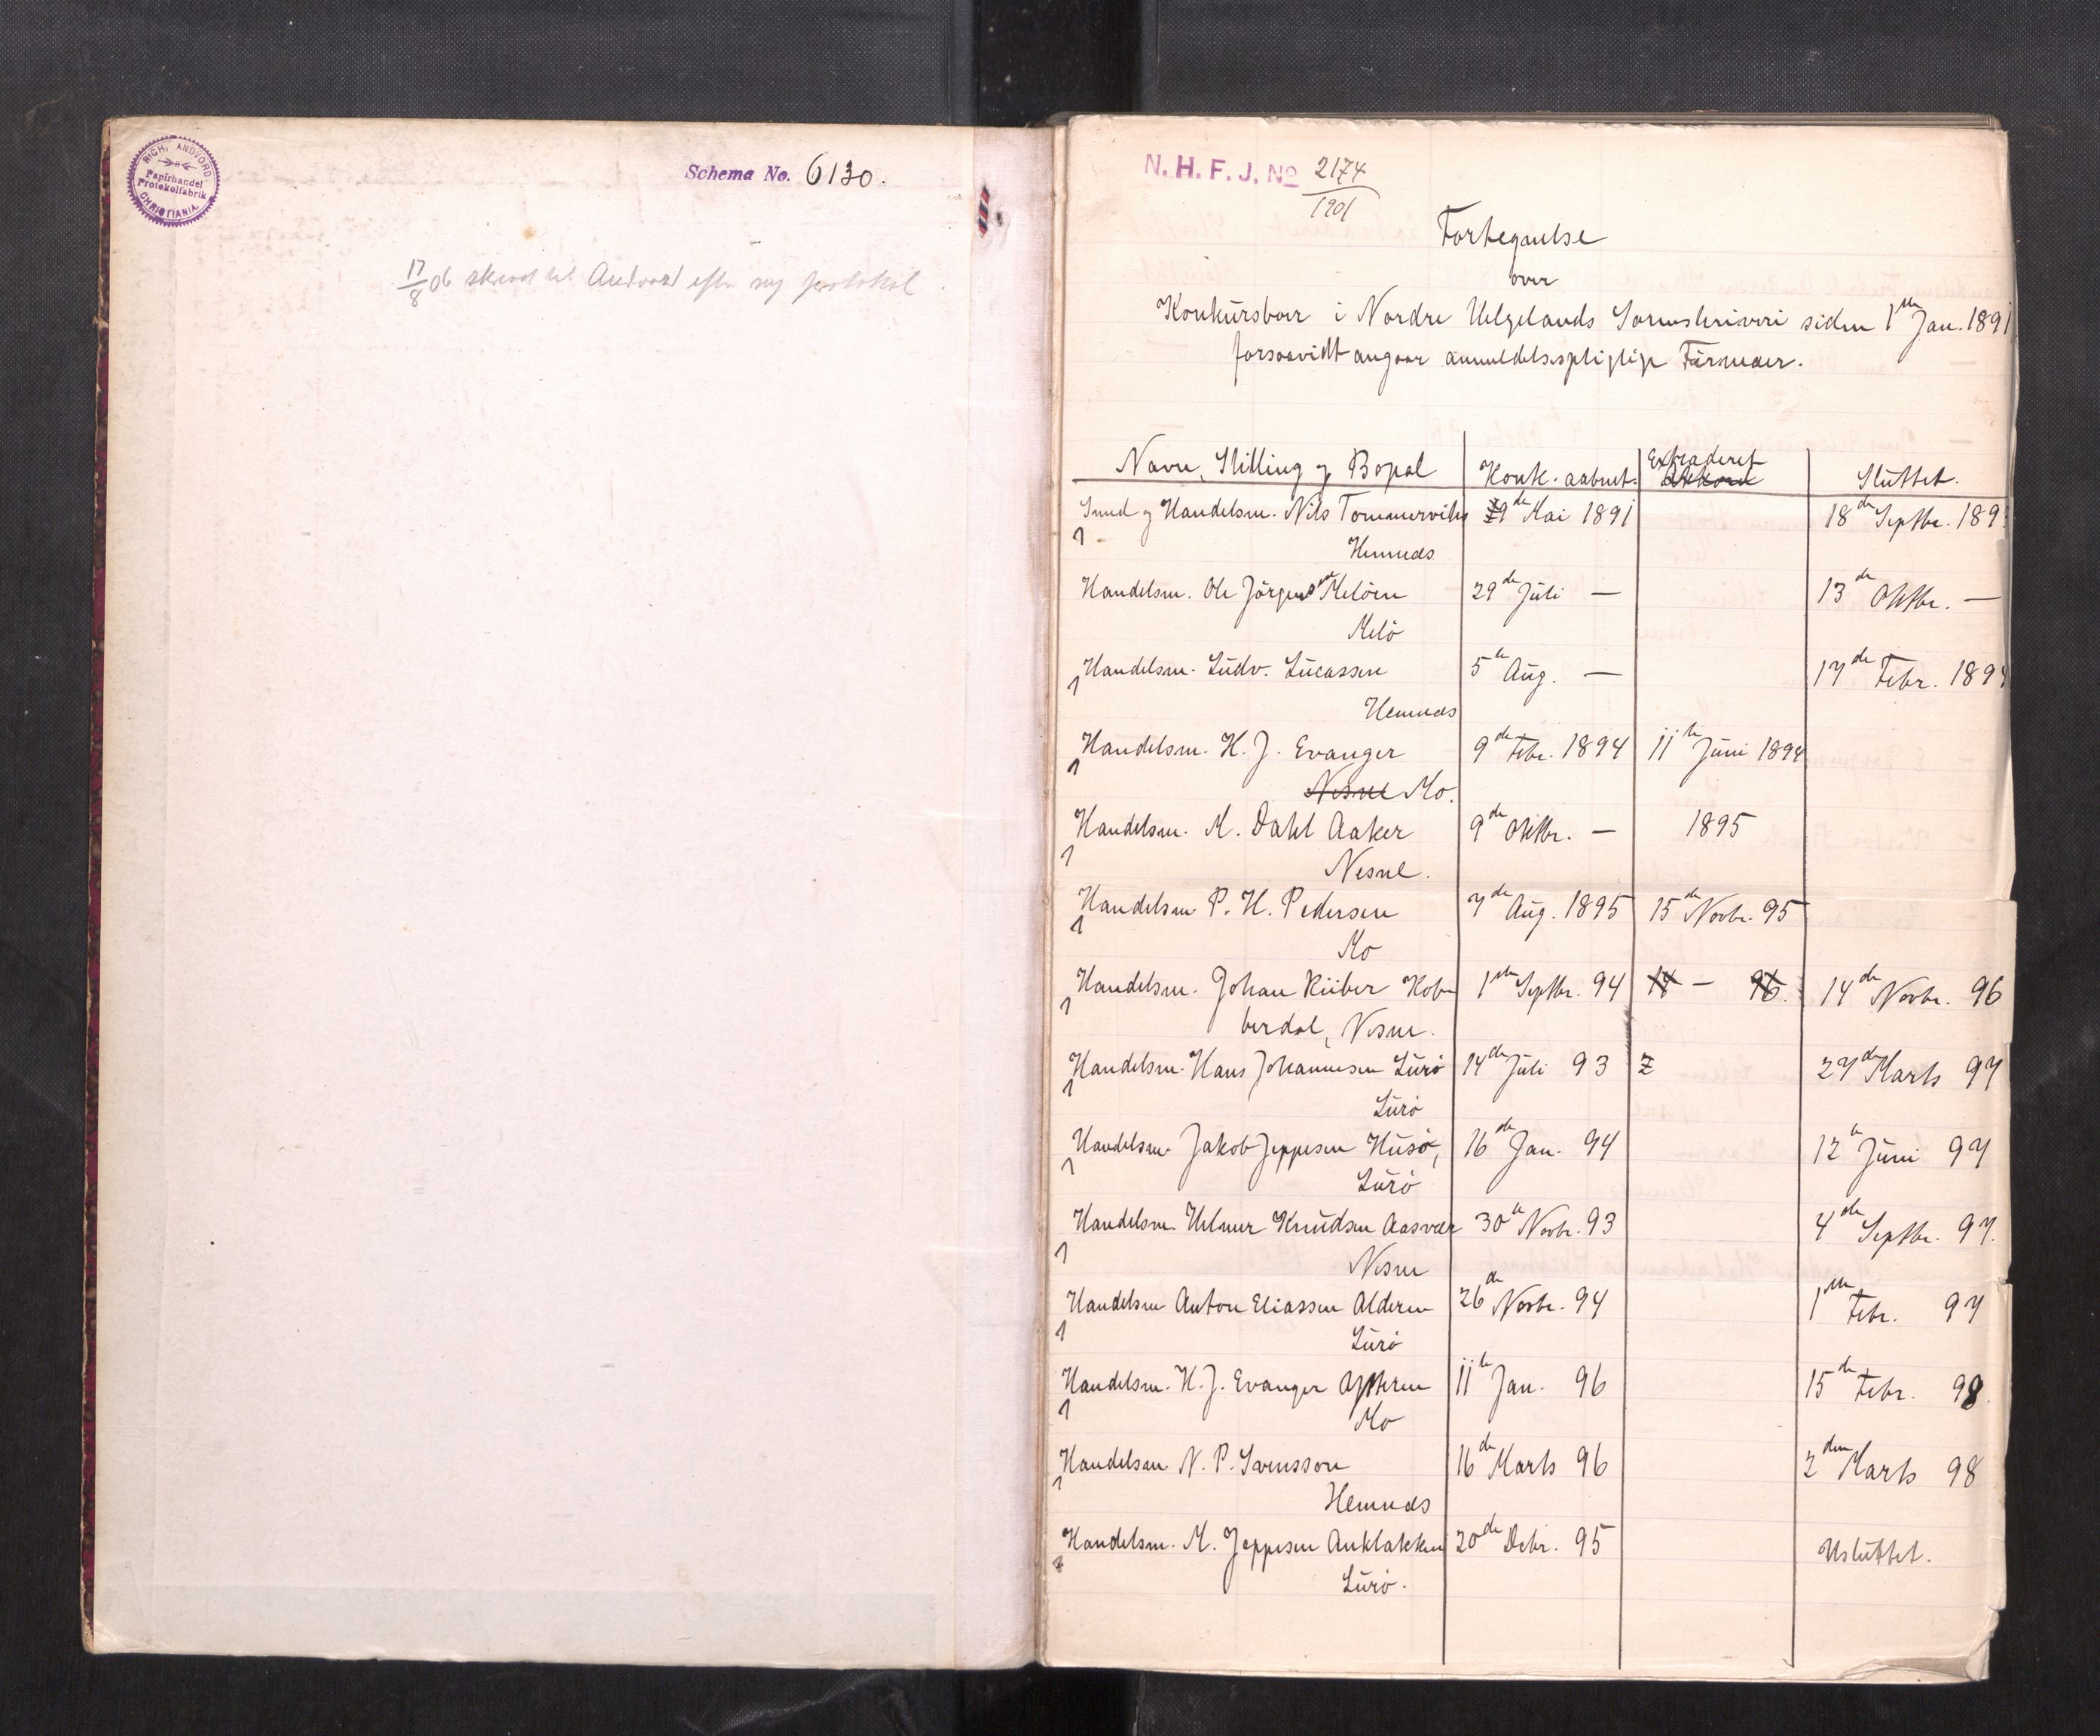 RICH. ANDVORD
Papirhandel
Protokolfabrik
CHRISTIANIA.
Schema No. 6130.
17/8 06 skrevet til Andvord efter ny protokol
N. H. F. J. No 2174
1901
Fortegnelse
over
Konkursboer i Nordre Helgelands Sorenskriveri siden 1ste Jan. 1891
forsaavidt angaar anmeldelsespligtige Firmaer.
Navn, Stilling og Bopæl | Konk. aabnet. | Extraderet | Sluttet.
Smed og Handelsm. Nils Tommervik | 29de Mai 1891 | 18de Septbr. 189
Hemnæs
Handelsm. Ole Jörgensen Melöen | 29de Juli — | 13de Oktbr. —
Melö
Handelsm. Ludv. Lucassen | 5te Aug. — | 17de Febr. 1894
Hemnæs
Handelsm. H. J. Evanger | 9de Febr. 1894 | 11te Juni 1894
Nesne Mo.
Handelsm. M. Dahl Aaker | 9de Oktbr. — | 1895
Nesne.
Handelsm. P. H. Pedersen | 7de Aug. 1895 | 15de Novbr. 95
Mo
Handelsm. Johan Riiber Kob | 1ste Septbr. 94 | 14 — 96. | 14de Novbr. 96
berdal, Nesne.
Handelsm. Hans Johannesen Lurö | 14de Juli 93 | 27de Marts 97
Lurö
Handelsm. Jakob Jeppesen Husö, | 16de Jan. 94 | 12te Juni 97
Lurö
Handelsm. Helmer Knudsen Aasvær | 30te Novbr. 93 | 4de Septbr. 97.
Nesne
Handelsm. Anton Eliassen Alderen | 26de Novbr. 94 | 1ste Febr. 97
Lurö
Handelsm. H. J. Evanger Ytteren | 11te Jan. 96 | 15de Febr. 98.
Mo
Handelsm. N. P. Svensson | 16de Marts 96 | 2den Marts 98
Hemnæs
Handelsm. M. Jeppesen Anklakken | 20de Debr. 95 | Usluttet.
Lurö.